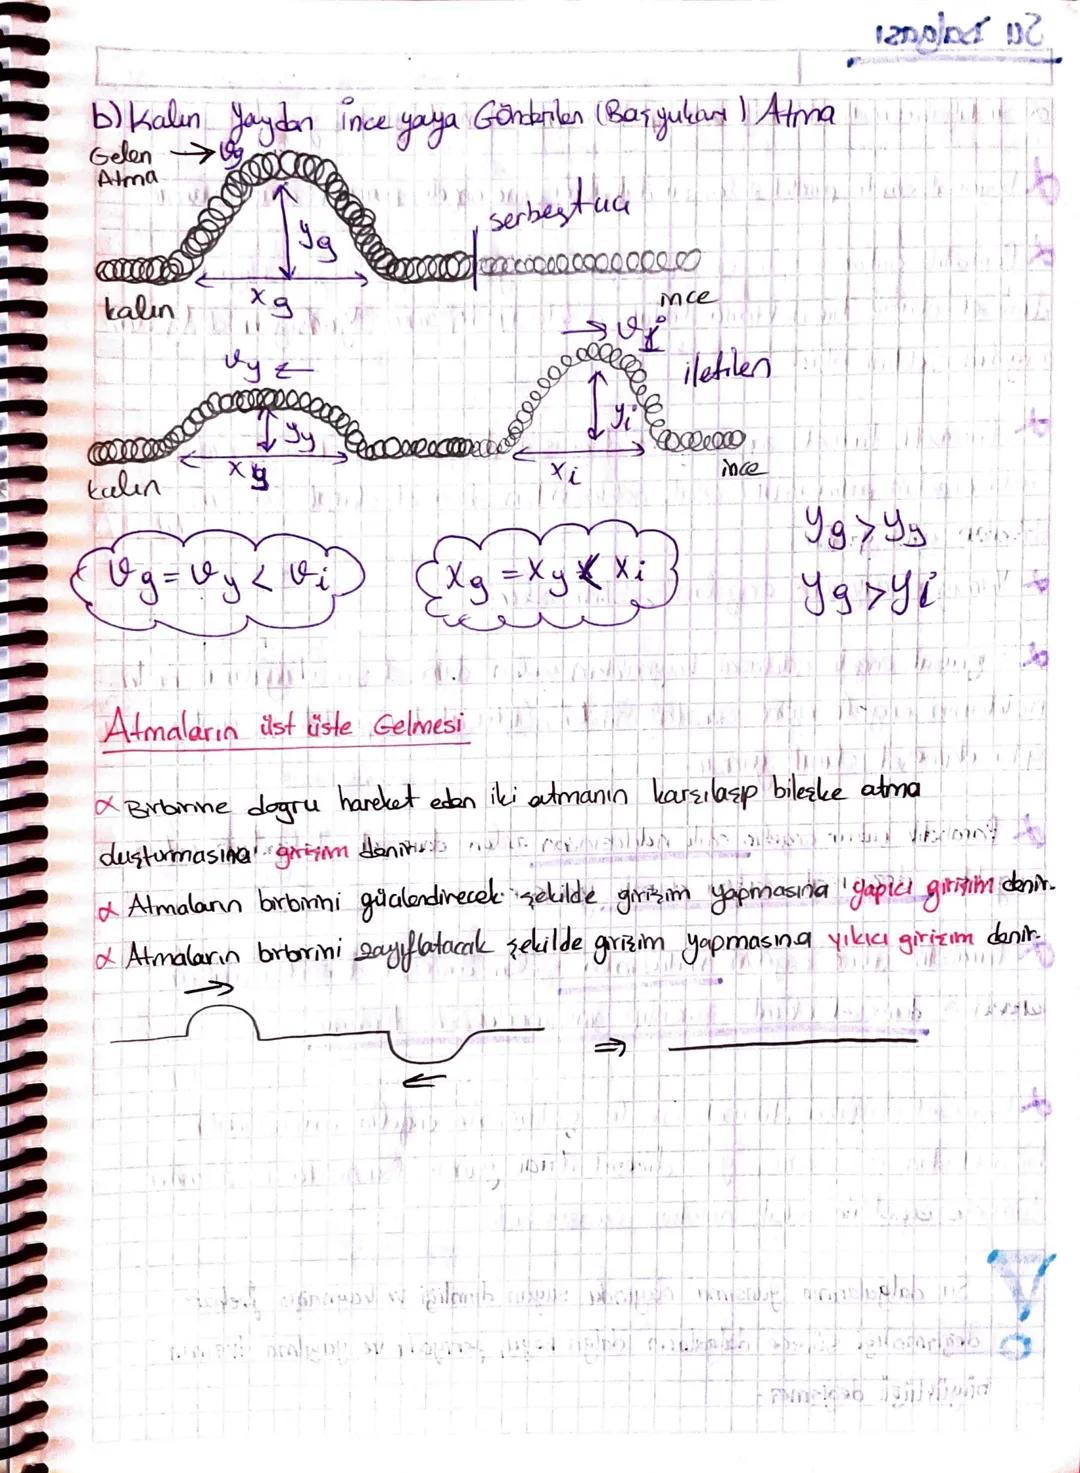 b) Kalın Yaydan ince yaya Gönderilen (Başyukarı) Atma
Gelen → υg
Atma
yg
serbest uç
kalın
xg
ince
υi
υy
iletilen
yy
yi
xy
xi
kalın
ince
υg = υy < υi
xg = xy < xi
yg > yy
yg > yi
Atmaların üst üste Gelmesi
α Birbirine doğru hareket eden iki atmanın karşılaşıp bileşke atma
oluşturmasına girişim denir.
α Atmaların birbirini güçlendirecek şekilde girişim yapmasına yapıcı girişim denir.
α Atmaların birbirini zayıflatacak şekilde girişim yapmasına yıkıcı girişim denir.
⇒